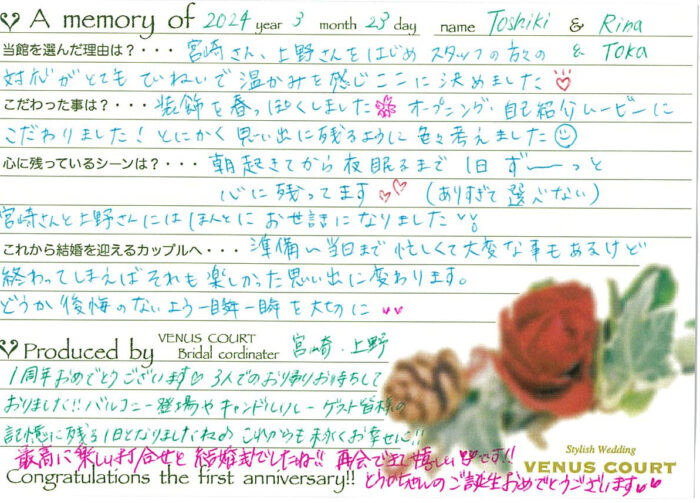 A memory of 2024 year 3 month 23 day name Toshiki & Rina
& Toka
当館を選んだ理由は?・・・ 宮崎さん、上野さんをはじめ スタッフの方々の
対応がとてもていねいで温かみを感じここに決めました
こだわった事は?・・・ 装飾を春っぽくしました オープニング・自己紹介ムービーに
こだわりました!とにかく思い出に残るように色々考えました
心に残っているシーンは?・・・ 朝起きてから夜眠るまで1日ず――っと
心に残ってます (ありすぎて選べない)
宮崎さんと上野さんにはほんとにお世話になりました
これから結婚を迎えるカップルへ・・・ 準備〜当日まで忙しくて大変な事もあるけど
終わってしまえばそれも楽しかった思い出に変わります。
どうか後悔のないよう一瞬一瞬を大切に
Produced by VENUS COURT Bridal cordinater 宮崎・上野
1周年おめでとうございます♡ 3人でのお帰りお待ちして
おりました!!バルコニー登場やキャンドルリレー ゲスト皆様の
記憶に残る1日となりましたね♪ これからも末永くお幸せに!!
最高に楽しい打合せと結婚式でしたね!! 再会できて嬉しいです!!
Stylish Wedding
VENUS COURT
Congratulations the first anniversary!! とうかちゃんのご誕生おめでとうございます